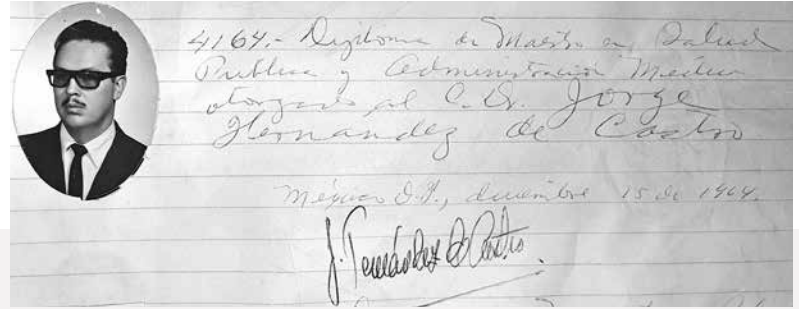 4164.- Diploma de Maestro en Salud
Publica y Administración Medica
otorgado al C. Dr. Jorge
Hernandez de Castro
México D.F., diciembre 15 de 1964.
J. Fernández de Castro.